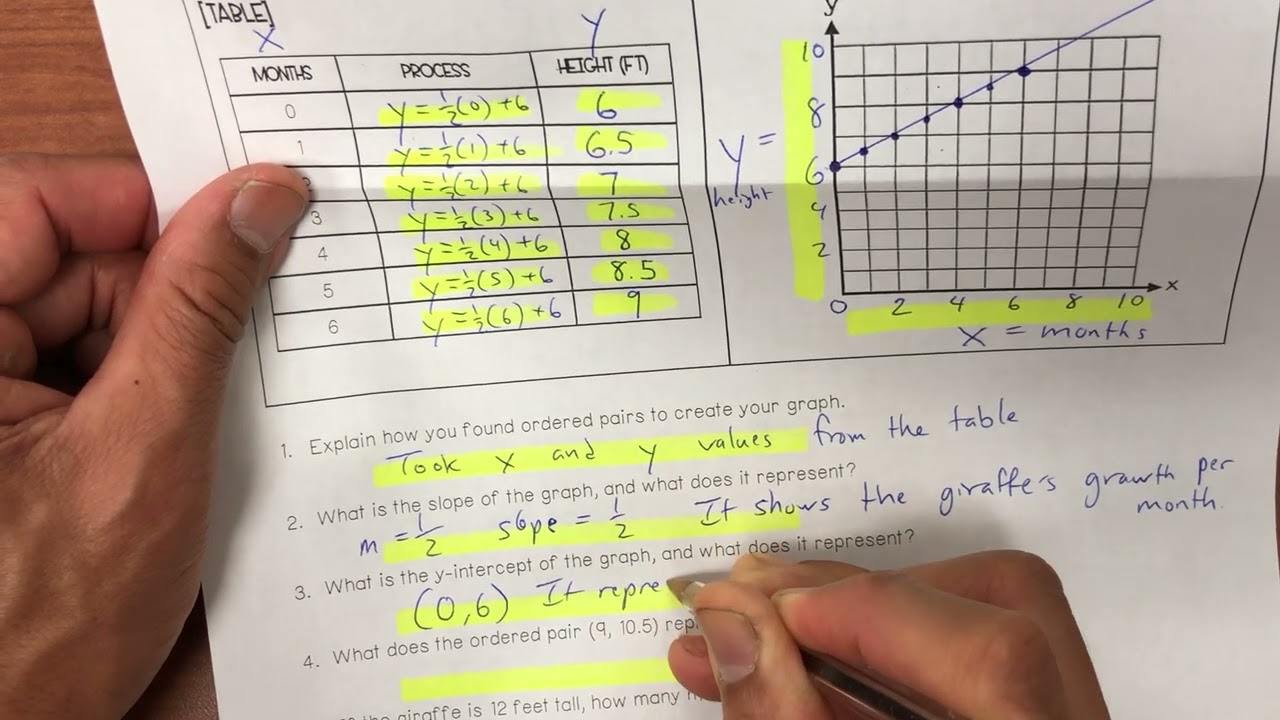 [TABLE]
X Y
MONTHS PROCESS HEIGHT (FT)
0 y = 1/2(0) + 6 6
1 y = 1/2(1) + 6 6.5
y = 1/2(2) + 6 7
3 y = 1/2(3) + 6 7.5
4 y = 1/2(4) + 6 8
5 y = 1/2(5) + 6 8.5
6 y = 1/2(6) + 6 9
y
10
8
6
4
2
0 2 4 6 8 10 x
y =
height
x = months
1. Explain how you found ordered pairs to create your graph.
Took x and y values from the table
2. What is the slope of the graph, and what does it represent?
m = 1/2 slope = 1/2 It shows the giraffe's growth per
month.
3. What is the y-intercept of the graph, and what does it represent?
(0,6) It repre
4. What does the ordered pair (9, 10.5) rep
the giraffe is 12 feet tall, how many